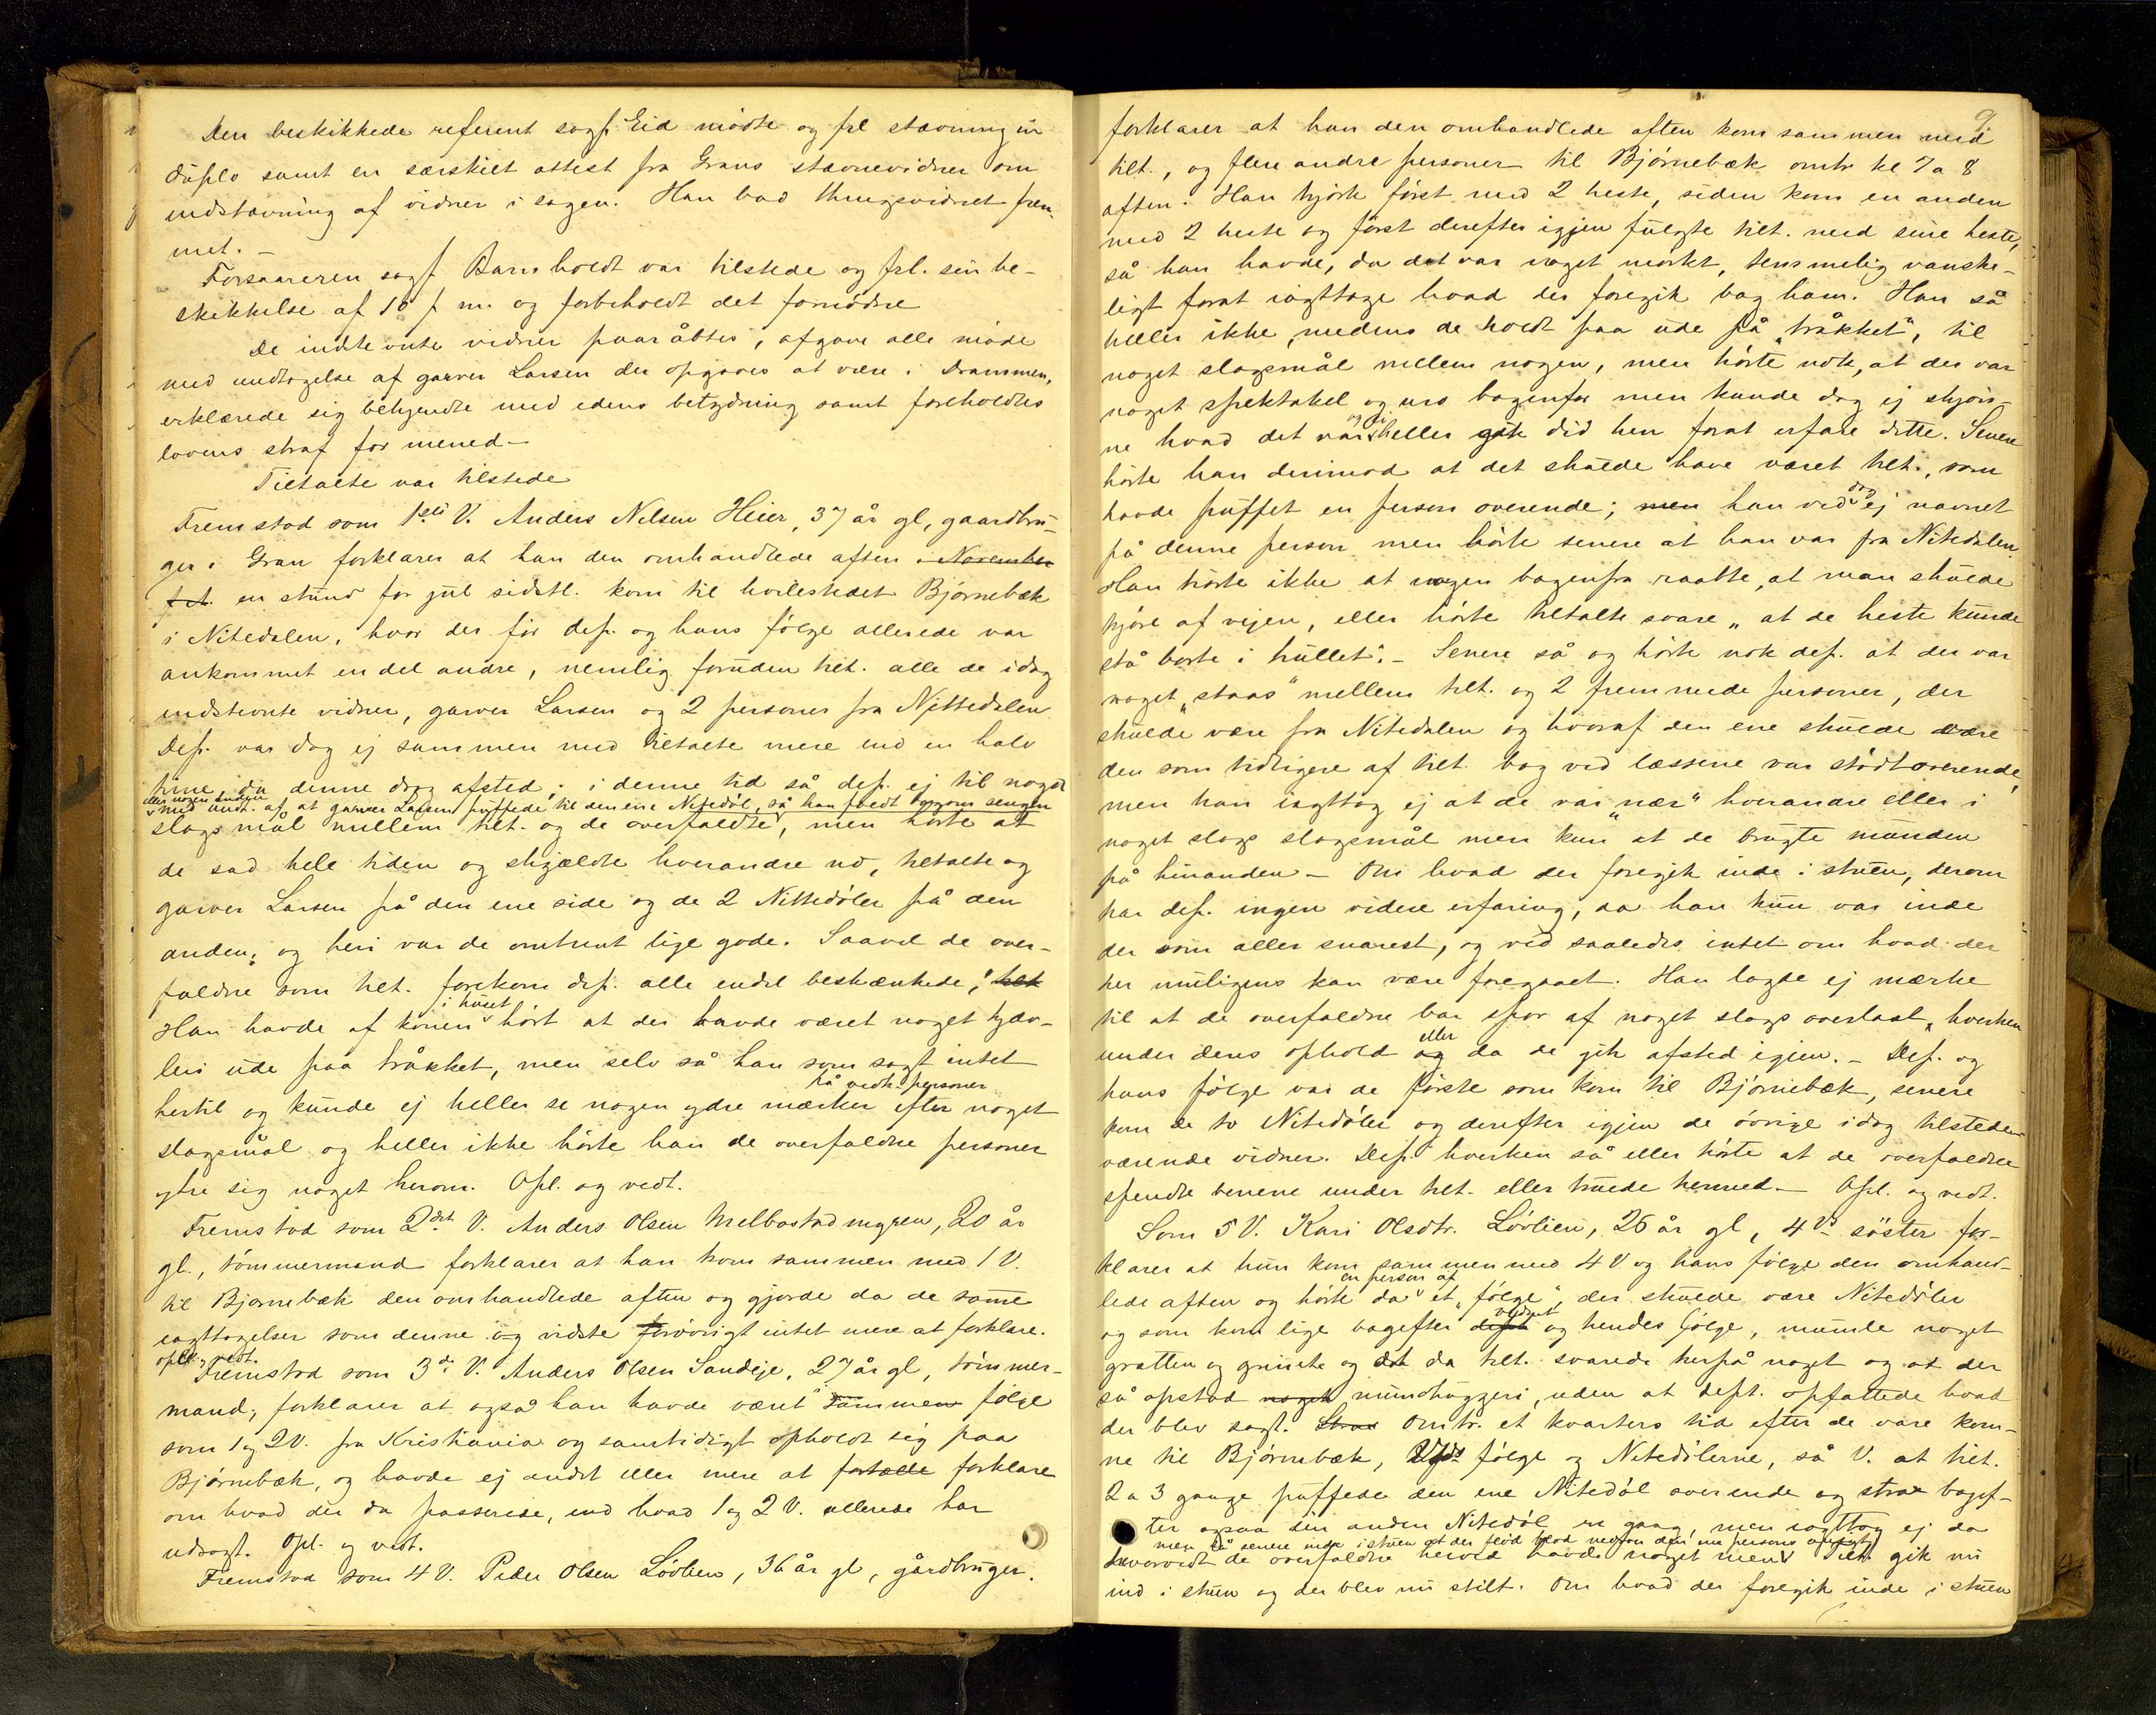 Den beskikkede referent sagf. Eid mødte og frl stævning in
duplo samt en særskilt attest fra Grans stævnevidner om
indstævning af vidner i sagen. Han bad thingsvidnet frem-
met. —
Forsvareren sagf. Barnholdt var tilstede og frl. sin be-
skikkelse af 10 f. m. og forbeholdt det fornødne
De indstevnte vidner paaråbtes, afgave alle møde
med undtagelse af garver Larsen der opgaves at være i Drammen,
erklærede sig bekjendte med edens betydning samt foreholdtes
lovens straf for mened —
Tiltalte var tilstede
Fremstod som 1ste V. Anders Nilsen Heier, 37 år gl, gaardbru-
ger i Gran forklarer at han den omhandlede aften i November
f. å. en stund før jul sidstl. kom til hvilestedet Bjørnebæk
i Nitedalen, hvor der før dep. og hans følge allerede var
ankommet en del andre, nemlig foruden tilt. alle de idag
indstevnte vidner, garver Larsen og 2 personer fra Nittedalen
Dep. var dog ej sammen med tiltalte mere end en halv
time, da denne drog afsted; i denne tid så dep. ej til noget
eller nogen anden
med undt. af at garver Larsen puffede til den ene Nitedøl, så han faldt bagom sengen
slagsmål mellem tilt. og de overfaldte, men hørte at
de sad hele tiden og skjældte hverandre ud, tiltalte og
garver Larsen på den ene side og de 2 Nittedøler på den
anden, og heri var de omtrent lige gode. Saavel de over-
faldne som tilt. forekom dep. alle endel beskænkede; tilt
i huset
Han havde af konen hørt at der havde været noget kjæv-
leri ude paa tråkket, men selv så han som sagt intet
på vedk. personer
hertil og kunde ej heller se nogen ydre mærker efter noget
slagsmål og heller ikke hørte han de overfaldne personer
ytre sig noget herom. Opl. og vedt.
Fremstod som 2det V. Anders Olsen Melbostadmyren, 20 år
gl., tømmermand forklarer at han kom sammen med 1 V.
til Bjørnebæk den omhandlede aften og gjorde da de samme
iagttagelser som denne og vidste forøvrigt intet mere at forklare.
opl. og vedt.
Fremstod som 3de V. Anders Olsen Sandeje, 27 år gl, tømmer-
mand, forklarer at også han havde været i sammen følge
som 1 og 2 V. fra Kristiania og samtidigt opholdt sig paa
Bjørnebæk, og havde ej andet eller mere at fortælle forklare
om hvad der da passerede, end hvad 1 og 2 V. allerede har
udsagt. Opl. og vedt.
Fremstod som 4 V. Peder Olsen Løvlien, 36 år gl, gårdbruger.
9
forklarer at han den omhandlede aften kom sammen med
tilt., og flere andre personer til Bjørnebæk omtr kl 7 a 8
aften. Han kjørte først med 2 heste, siden kom en anden
med 2 heste og først derefter igjen fulgte tilt. med sine heste,
så han havde, da det var noget mørkt, temmelig vanske-
ligt forat iagttage hvad der foregik bag ham. Han så
heller ikke, medens de holdt paa ude på „tråkket", til
noget slagsmål mellem nogen, men hørte nok, at der var
noget spektakel og uro bagenfor men kunde dog ej skjøn-
og ei
ne hvad det var heller gik did hen forat erfare dette. Senere
hørte han derimod at det skulde have været tilt., som
dog
havde puffet en person overende; men han ved ej navnet
på denne person men hørte senere at han var fra Nitedalen
Han hørte ikke at nogen bagenfra raabte, at man skulde
kjøre af vejen, eller hørte tiltalte svare „at de heste kunde
stå borte i hullet". — Senere så og hørte nok dep. at der var
noget „staas" mellem tilt. og 2 fremmede personer, der
skulde være fra Nitedalen og hvoraf den ene skulde være
den som tidligere af tilt. bag ved læssene var stødt overende,
men han iagttog ej at de var „nær" hverandre eller i
noget slags slagsmål men kun at de brugte munden
på hinanden — Om hvad der foregik inde i stuen, derom
har dep. ingen videre erfaring, da han kun var inde
der som aller snarest, og ved saaledes intet om hvad der
her muligens kan være foregaaet. Han lagde ej mærke
til at de overfaldne bar spor af noget slags overlast, hverken
eller
under deres ophold og da de gik afsted igjen. — Dep. og
hans følge var de første som kom til Bjørnebæk, senere
kom de to Nitedøler og derefter igjen de øvrige idag tilstede-
værende vidner. Dep. hverken så eller hørte at de overfaldne
spendte benene under tilt. eller truede hermed — Opl. og vedt.
Som 5 V. Kari Olsdtr. Løvlien, 26 år gl, 4 Vs søster for-
klarer at hun kom sammen med 4 V og hans følge den omhand-
en person af
lede aften og hørte da et „følge", der skulde være Nitedøler
vidnet
og som kom lige bagefter dept og hendes følge, mumle noget
gretten og grinete og at da tilt. svarede herpå noget og at der
så opstod noget mundhuggeri, uden at dept. opfattede hvad
der blev sagt. Strax Omtr. et kvarters tid efter de vare kom-
ne til Bjørnebæk, Vdts følge og Nitedølerne, så V. at tilt.
2 a 3 gange puffede den ene Nitedøl overende og strax bagef-
ter ogsaa den anden Nitedøl en gang, men iagttog ej da
men så senere inde i stuen at der flød blod nedover den ene persons ansigt
hvorvidt de overfaldne herved havde noget men. Tilt. gik nu
ind i stuen og der blev nu stilt. Om hvad der foregik inde i stuen